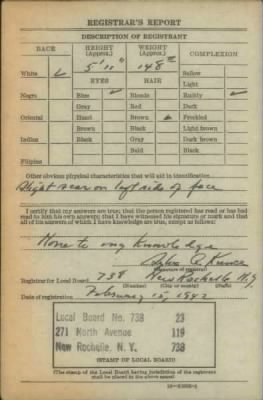 REGISTRAR'S REPORT
DESCRIPTION OF REGISTRANT
RACE HEIGHT (Approx.) WEIGHT (Approx.) COMPLEXION
White ✓ 5' 11" 148 Sallow
EYES HAIR Light
Negro Blue ✓ Blonde Ruddy ✓
Gray Red Dark
Oriental Hazel Brown ✓ Freckled
Brown Black Light brown
Indian Black Gray Dark brown
Bald Black
Filipino
Other obvious physical characteristics that will aid in identification
Slight scar on left side of face
I certify that my answers are true; that the person registered has read or has had read to him his own answers; that I have witnessed his signature or mark and that all of his answers of which I have knowledge are true, except as follows:
None to my knowledge
(Signature of registrar)
Registrar for Local Board 738 New Rochelle N.Y
(Number) (City or county) (State)
Date of registration February 15, 1942
Local Board No. 738 23
271 North Avenue 119
New Rochelle, N.Y. 738
(STAMP OF LOCAL BOARD)
(The stamp of the Local Board having jurisdiction of the registrant shall be placed in the above space)